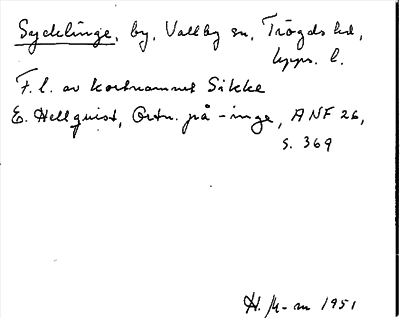 Sycklinge, by, Vallby sn, Trögds hd,
Upps. l.
F. l. av kortnamnet Sikke
E. Hellquist, Ortn. på -inge, ANF 26,
s. 369
H. M-m 1951